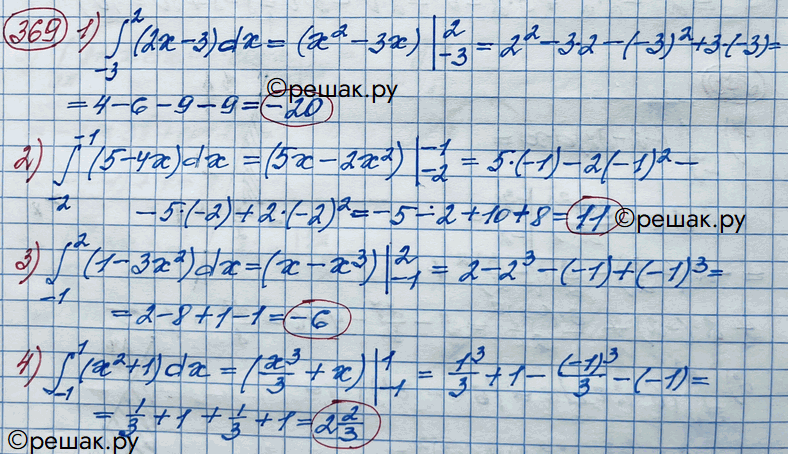 369 1) ∫₋₃² (2x-3)dx = (x² - 3x) |₋₃² = 2² - 3·2 - (-3)² + 3·(-3) =
= 4 - 6 - 9 - 9 = -20 ©решак.ру
2) ∫₋₂⁻¹ (5-4x)dx = (5x - 2x²) |₋₂⁻¹ = 5·(-1) - 2(-1)² -
- 5·(-2) + 2·(-2)² = -5 - 2 + 10 + 8 = 11 ©решак.ру
3) ∫₋₁² (1-3x²)dx = (x - x³) |₋₁² = 2 - 2³ - (-1) + (-1)³ =
= 2 - 8 + 1 - 1 = -6
4) ∫₋₁¹ (x²+1)dx = (x³/3 + x) |₋₁¹ = 1³/3 + 1 - (-1)³/3 - (-1) =
= 1/3 + 1 + 1/3 + 1 = 2 2/3
©решак.ру